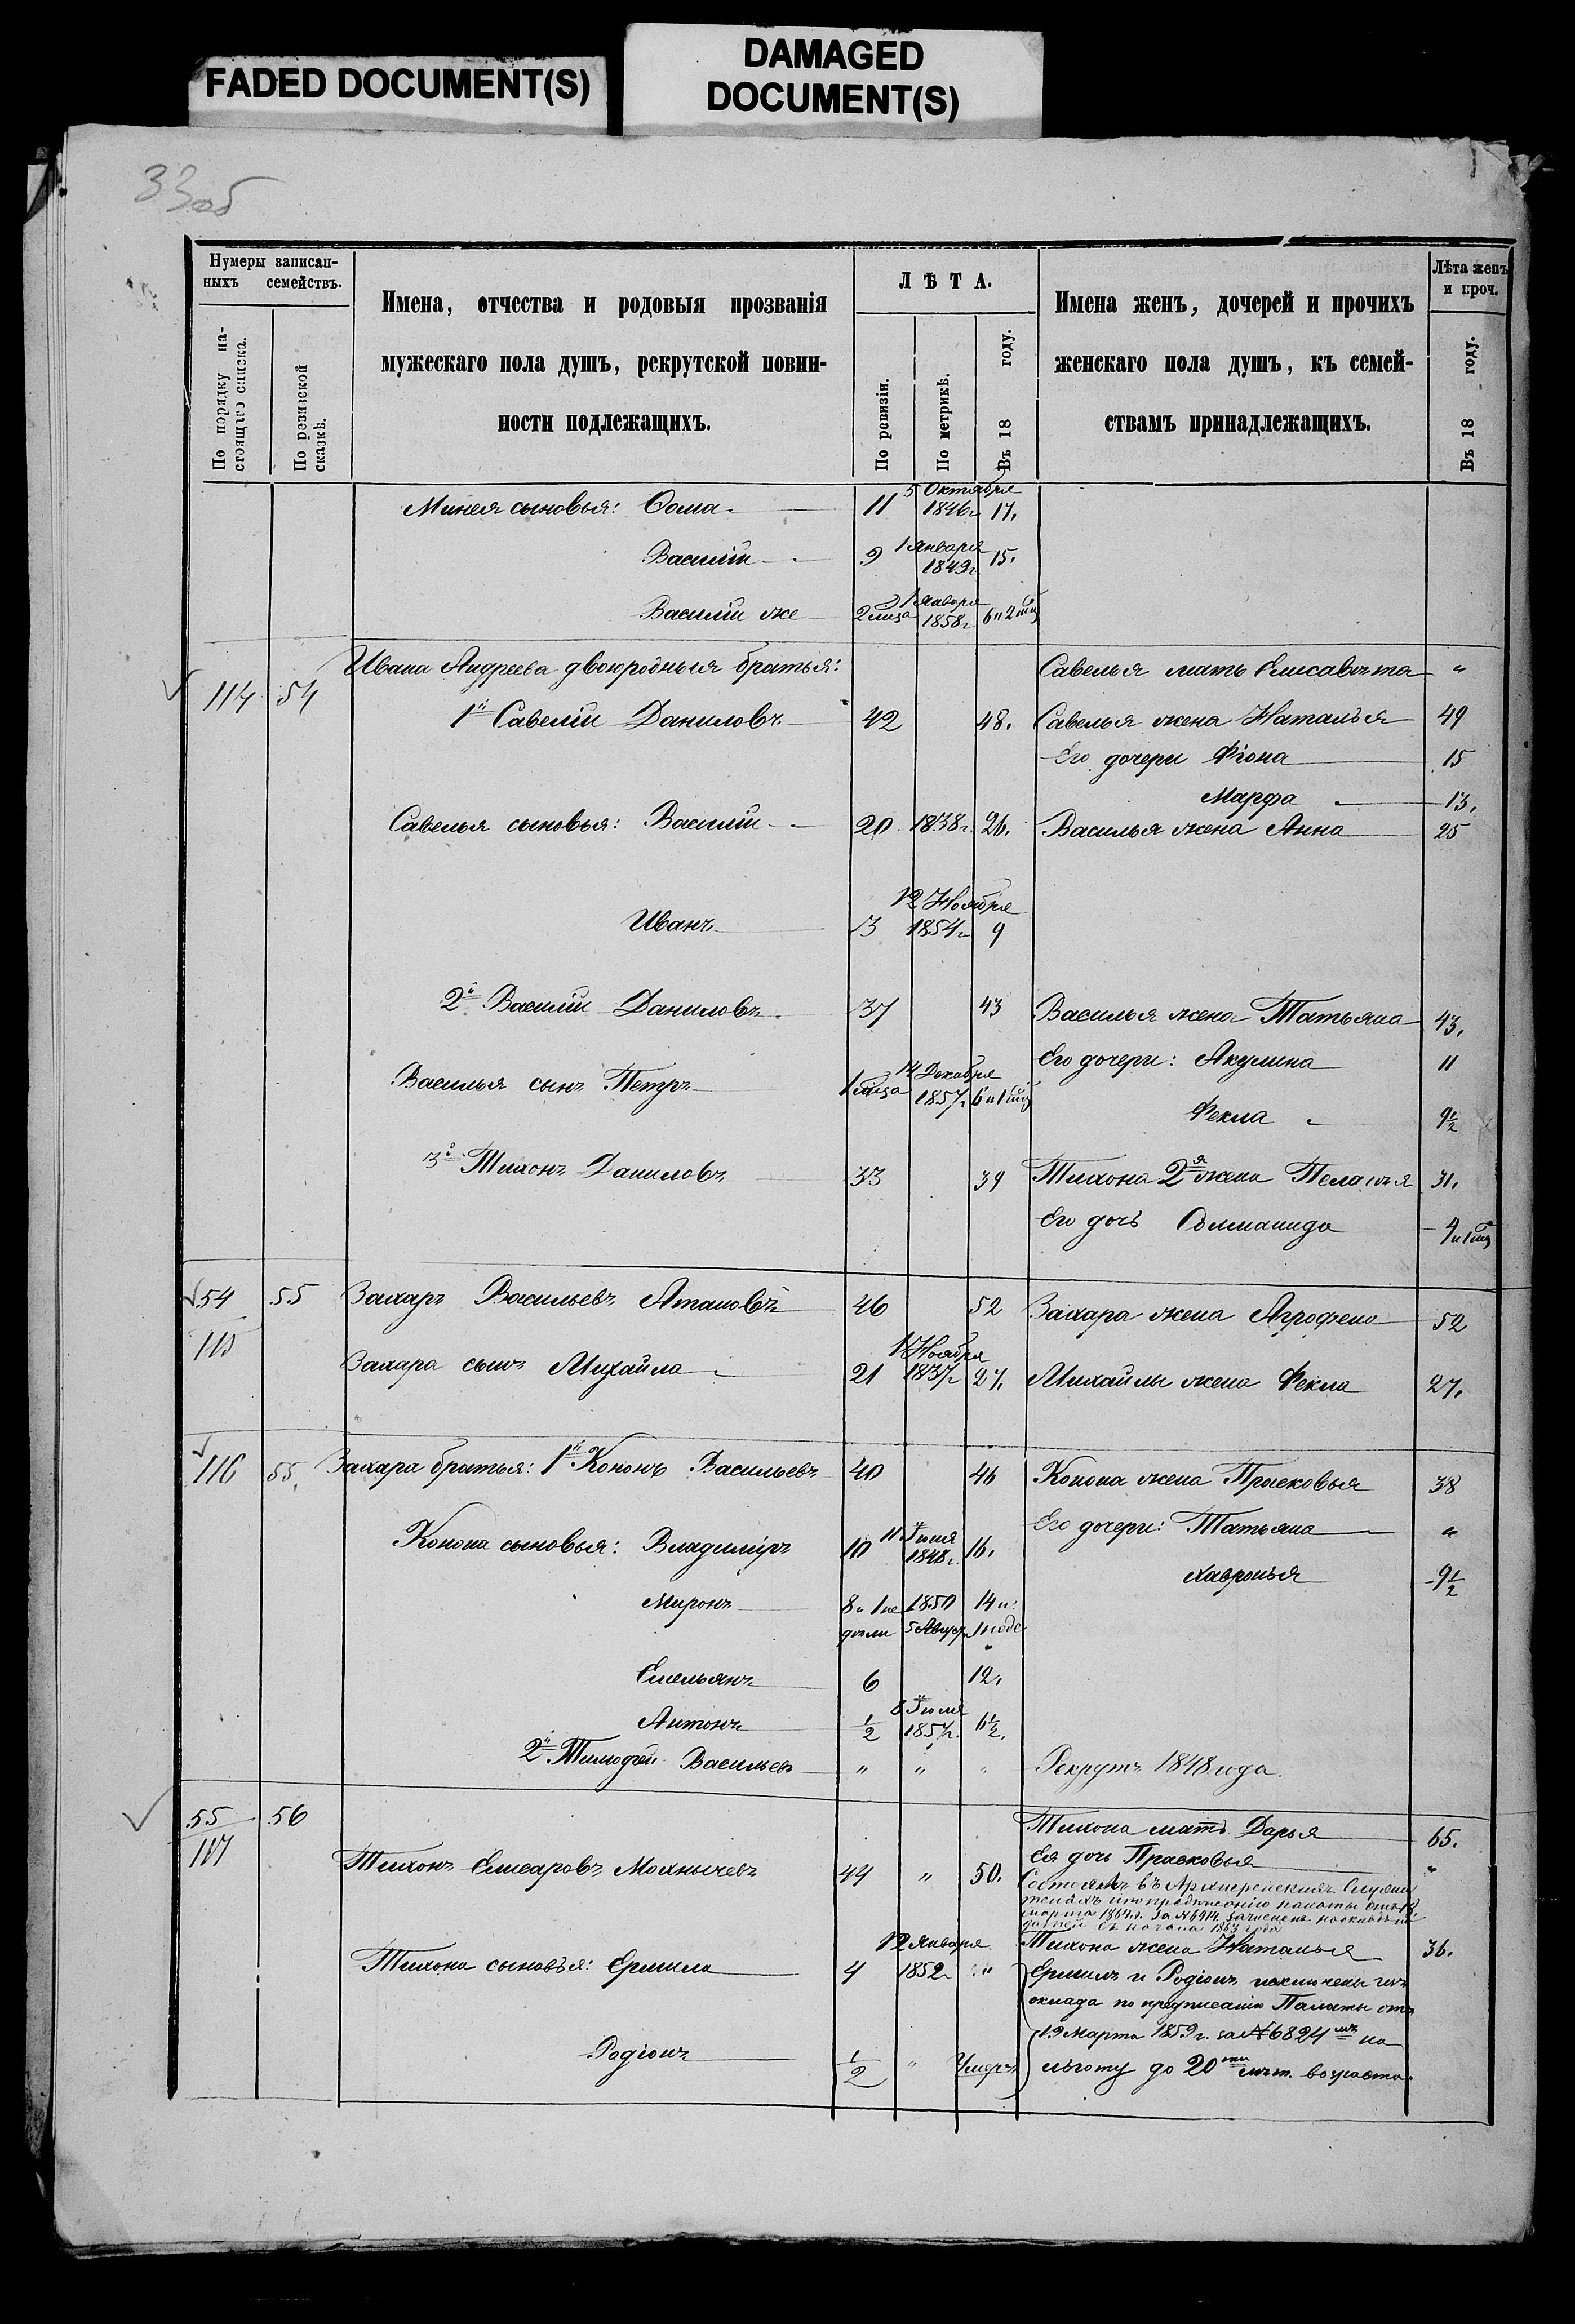 FADED DOCUMENT(S)
DAMAGED
DOCUMENT(S)
33об
Нумеры записан-
ныхъ семействъ.
По порядку на-
стоящаго списка.
По ревизской
сказкѣ.
Имена, отчества и родовыя прозванія
мужескаго пола душъ, рекрутской повин-
ности подлежащихъ.
ЛѢТА.
По ревизіи.
По метрикѣ.
Въ 18 году.
Имена женъ, дочерей и прочихъ
женскаго пола душъ, къ семей-
ствамъ принадлежащихъ.
Лѣта женъ
и проч.
Въ 18 году.
Минея сыновья: Ѳома 11 5 Октября 1846г 17.
Василій 9 1 Января 1849г. 15.
Василій же 2 мца 1 Января 1858г 6 и 2 мц
Ивана Андреева двоюродныя братья: Савелья мать Елисавета "
114 54 1й Савелій Даниловъ 42 48. Савелья жена Наталья 49
Его дочери Фіона 15
Марфа 13.
Савелья сыновья: Василій 20 1838г. 26. Василья жена Анна 25
Иванъ 3 12 Ноября 1854г 9
2й Василій Даниловъ 37 43 Василья жена Татьяна 43.
Его дочери: Акулина 11
Василья сынъ Петръ 1 мца 14 Декабря 1857г 6 и 1 мц
Фекла 9 1/2
3й Тихонъ Даниловъ 33 39 Тихона 2я жена Пелагья 31.
Его дочь 4 и 1 мц
54 55 Захаръ Васильевъ 46 52 Захара жена Агрофена 52
115
Захара сынъ Михайла 21 1 Ноября 1837г 27. Михайлы жена Фекла 27.
116 55. Захара братья: 1й Кононъ Васильевъ 40 46 Конона жена Прасковья 38
Его дочери: Татьяна "
Конона сыновья: Владиміръ 10 11 1848г. 16.
Хавронья 9 1/2
Миронъ 8 и 1 не 1850 14 и
дѣли 5 1 неде
Емельянъ 6 12.
Антонъ 1/2 8 Іюля 1857г. 6 1/2.
2й Тимофей Васильевъ " " " Рекрутъ 1848 года.
55 56 Тихона мать Дарья 65.
117
Ея дочь Прасковья "
Тихонъ Елизаровъ 44 " 50. Состоялъ въ Архиерейскихъ Служи
теляхъ и по предписанію палаты отъ
марта 1864г. за №6914. зачисленъ
съ начала 1863 года
Тихона жена Наталья 36.
Тихона сыновья: Ермила 4 12 Января 1852г " Ермилъ и Родіонъ исключены изъ
оклада по предписанію Палаты отъ
19 Марта 1859г. за №6824мъ на
Родіонъ 1/2 " Умеръ льготу до 20ти лѣт. возраста.